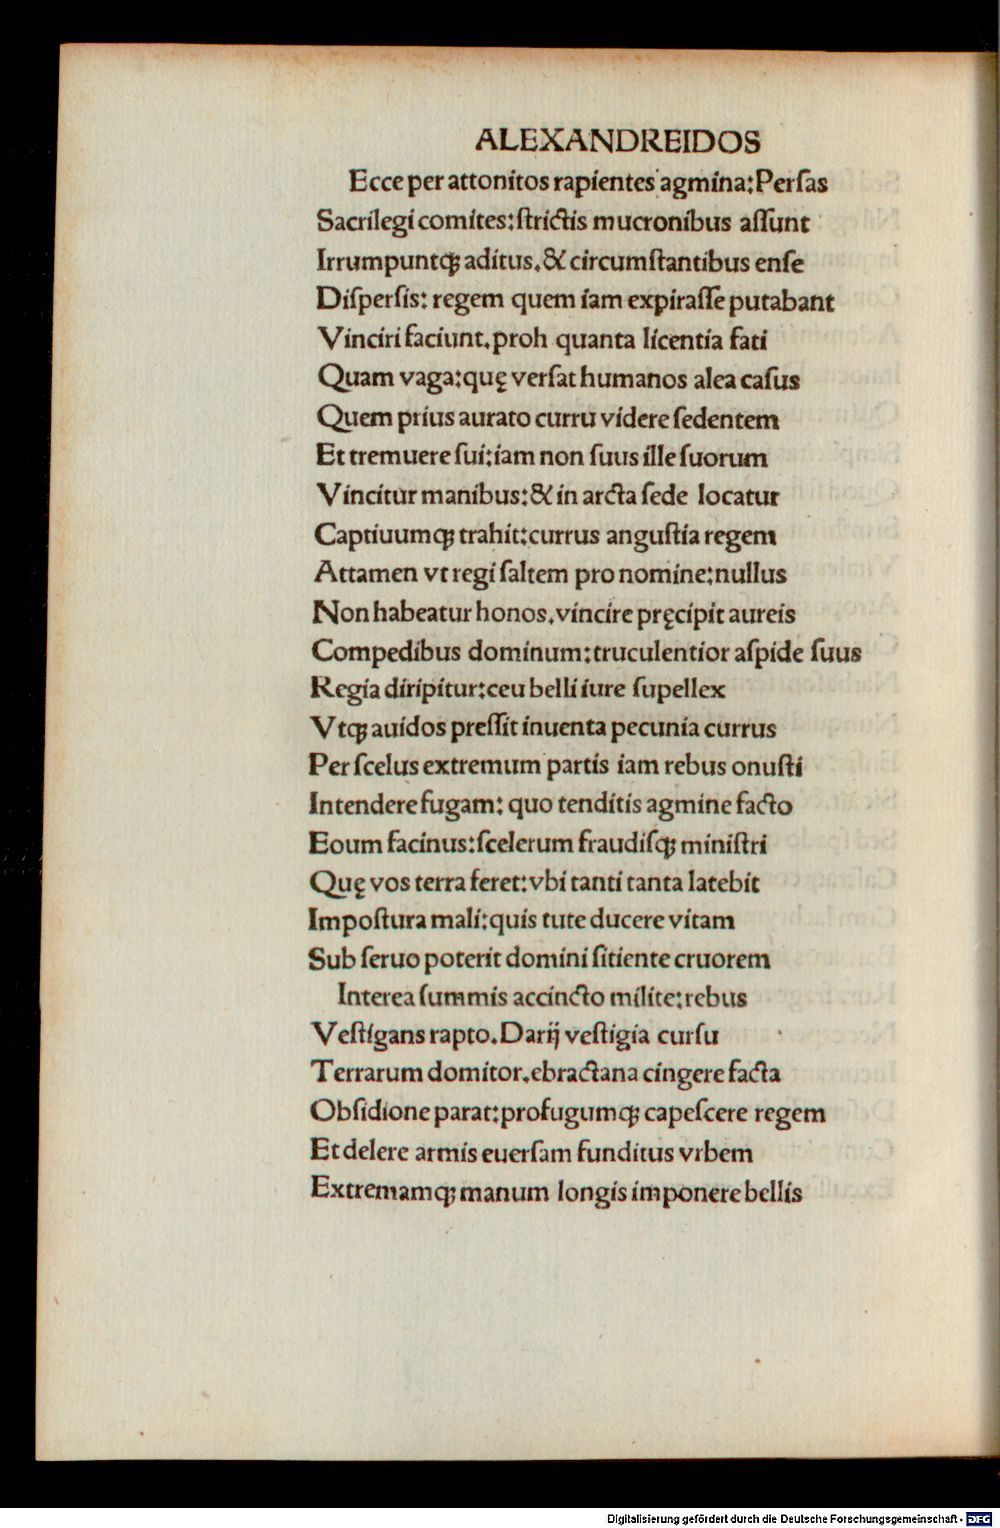 ALEXANDREIDOS
Ecce per attonitos rapientes agmina: Perſas
Sacrilegi comites: ſtrictis mucronibus aſſunt
Irrumpuntqꝫ aditus. & circumſtantibus enſe
Diſperſis: regem quem iam expiraſſe putabant
Vinciri faciunt. proh quanta licentia fati
Quam vaga: quę verſat humanos alea caſus
Quem prius aurato curru videre ſedentem
Et tremuere ſui: iam non ſuus ille ſuorum
Vincitur manibus: & in arcta ſede locatur
Captiuumqꝫ trahit: currus anguſtia regem
Attamen vt regi ſaltem pro nomine: nullus
Non habeatur honos. vincire pręcipit aureis
Compedibus dominum: truculentior aſpide ſuus
Regia diripitur: ceu belli iure ſupellex
Vtqꝫ auidos preſſit inuenta pecunia currus
Per ſcelus extremum partis iam rebus onuſti
Intendere fugam: quo tenditis agmine facto
Eoum facinus: ſcelerum fraudiſqꝫ miniſtri
Quę vos terra feret: vbi tanti tanta latebit
Impoſtura mali: quis tute ducere vitam
Sub ſeruo poterit domini ſitiente cruorem
Interea ſummis accincto milite: rebus
Veſtigans rapto. Darij veſtigia curſu
Terrarum domitor. ebractana cingere facta
Obſidione parat: profugumqꝫ capeſcere regem
Et delere armis euerſam funditus vrbem
Extremamqꝫ manum longis imponere bellis
Digitalisierung gefördert durch die Deutsche Forschungsgemeinschaft - DFG